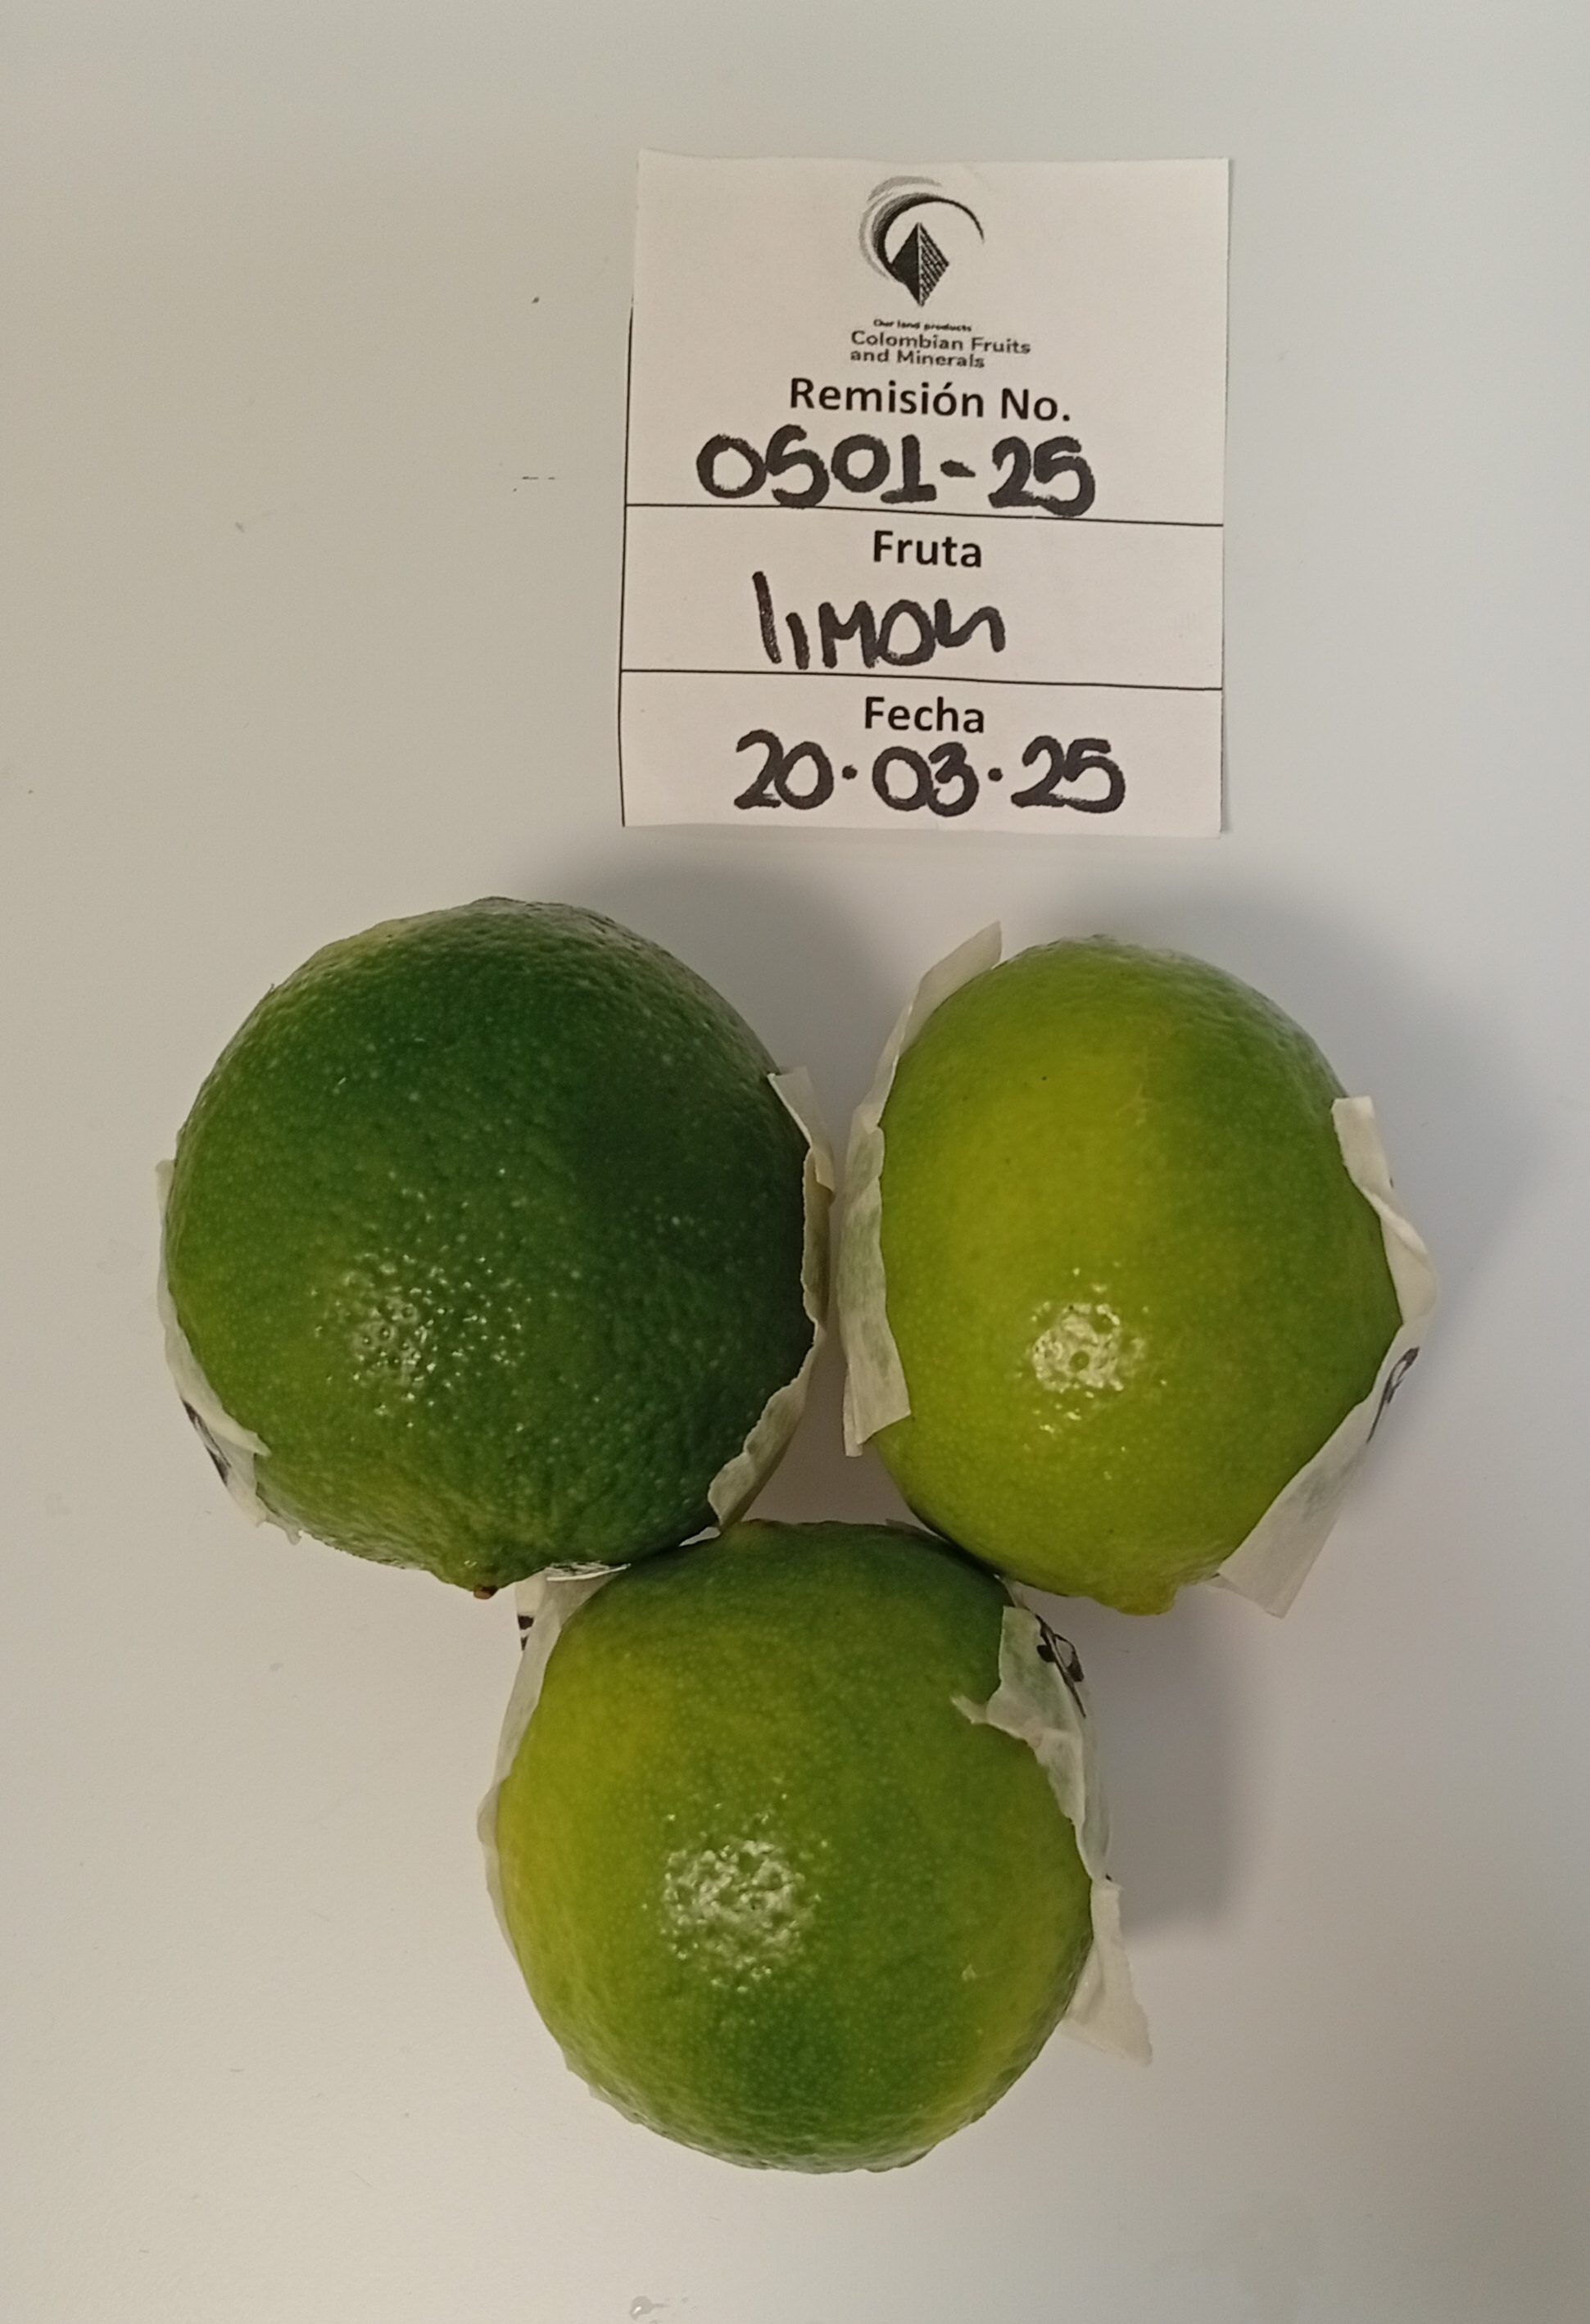 Our land products
Colombian Fruits
and Minerals
Remisión No.
0501-25
Fruta
limon
Fecha
20·03·25